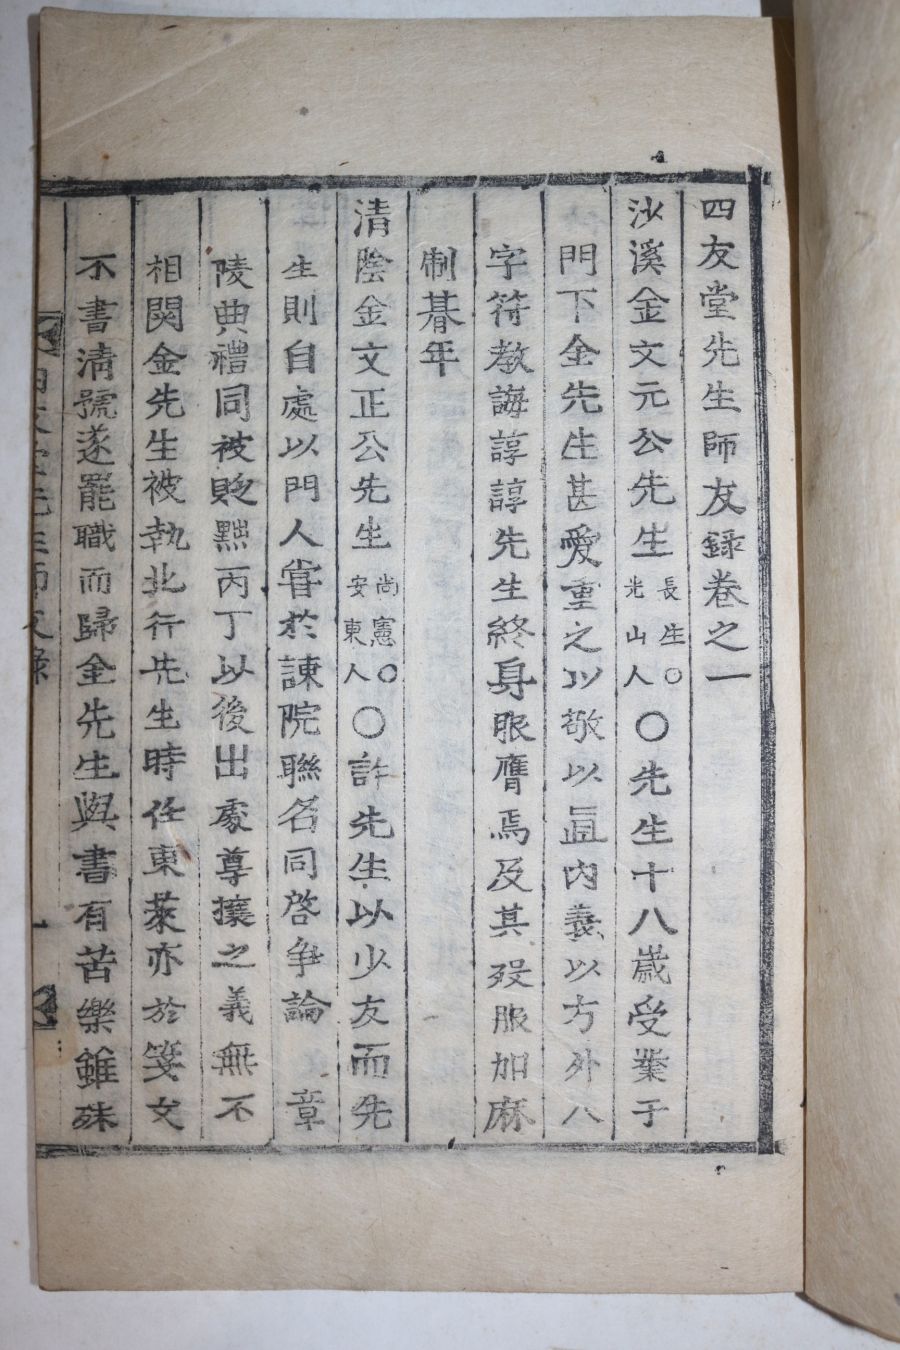 四友堂先生師友録卷之一
沙溪金文元公先生 長生○光山人 ○先生十八歲受業于
門下金先生甚愛重之以敬以直內義以方外八
字符教誨諄諄先生終身服膺焉及其歿服加麻
制朞年
清陰金文正公先生 尚憲○安東人 ○許先生以少友而先
生則自處以門人嘗於諫院聯名同啓爭論 章
陵典禮同被貶黜丙丁以後出處尊攘之義無不
相関金先生被執北行先生時任東萊亦於箋文
不書清號遂罷職而歸金先生與書有苦樂雖殊